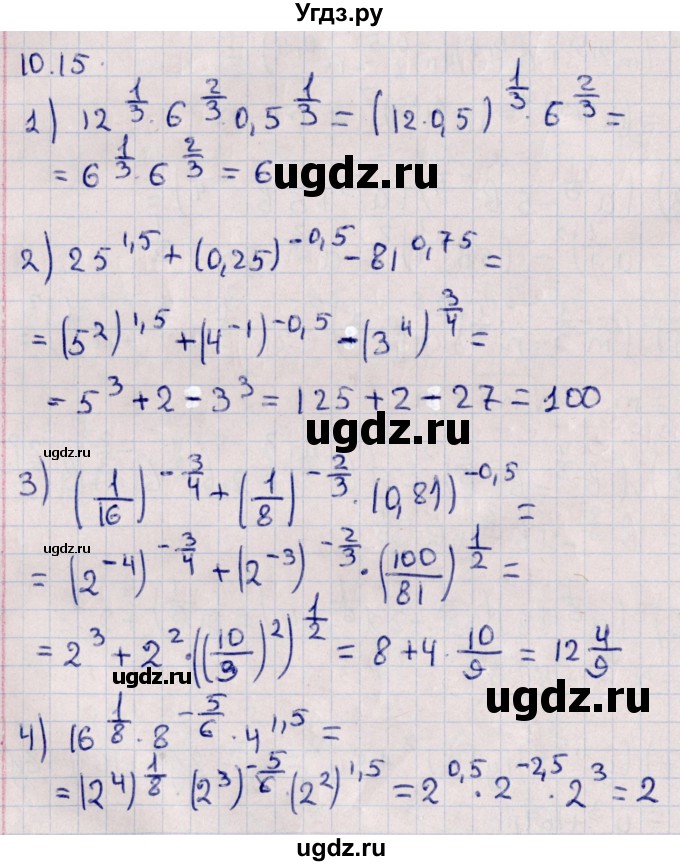 Угдз.ру
10.15
1) 12^(1/3) · 6^(2/3) · 0,5^(1/3) = (12·0,5)^(1/3) · 6^(2/3) =
= 6^(1/3) · 6^(2/3) = 6
ugdz.ru
2) 25^(1,5) + (0,25)^(-0,5) - 81^(0,75) =
= (5^2)^(1,5) + (4^(-1))^(-0,5) - (3^4)^(3/4) =
= 5^3 + 2 - 3^3 = 125 + 2 - 27 = 100
ugdz.ru
ugdz.ru
3) (1/16)^(-3/4) + (1/8)^(-2/3) · (0,81)^(-0,5) =
ugdz.ru
= (2^(-4))^(-3/4) + (2^(-3))^(-2/3) · (100/81)^(1/2) =
= 2^3 + 2^2 · ((10/9)^2)^(1/2) = 8 + 4 · 10/9 = 12 4/9
ugdz.ru
ugdz.ru
4) 16^(1/8) · 8^(-5/6) · 4^(1,5) =
= (2^4)^(1/8) · (2^3)^(-5/6) · (2^2)^(1,5) = 2^(0,5) · 2^(-2,5) · 2^3 = 2
ugdz.ru
ugdz.ru